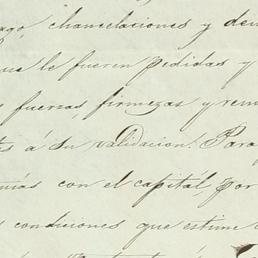 chancelaciones y de
que le fueren pedidas y
fuerzas, firmezas y ren
á su validacion. Para
con el capital, por
condiciones que estime